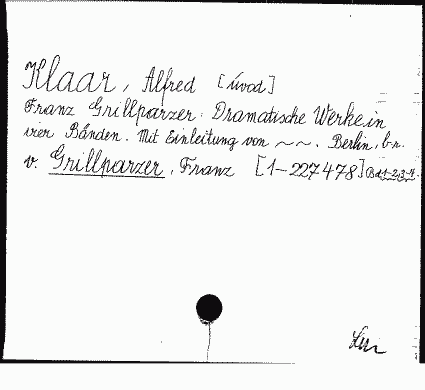 Klaar, Alfred [úvod]
Franz Grillparzer. Dramatische Werke in
vier Bänden. Mit Einleitung von ~~. Berlin, b.r.
v. Grillparzer, Franz [1-227478] Bd 1-2, 3-4.